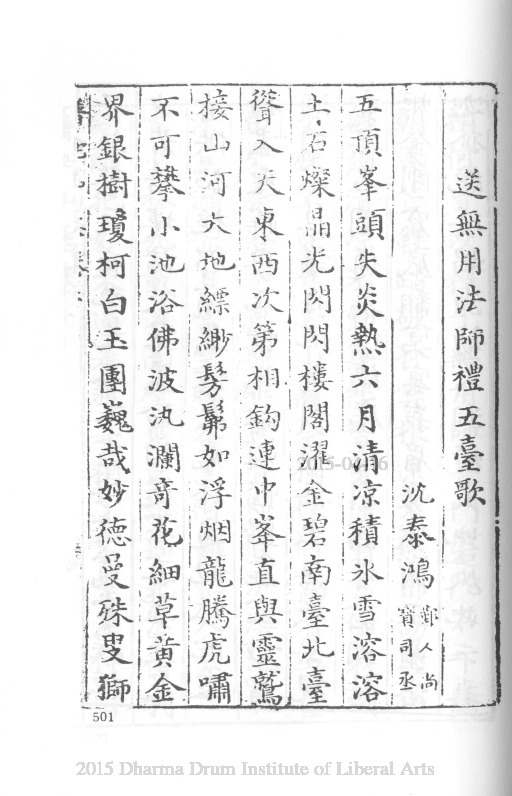 送無用法師禮五臺歌
沈泰鴻 鄞人尚寶司丞
五頂峯頭失炎熱六月清凉積氷雪溶溶
土石燦晶光閃閃樓閣濯金碧南臺北臺
聳入天東西次第相鈎連中峯直與靈鷲
接山河大地縹緲髣髴如浮烟龍騰虎嘯
不可攀小池浴佛波汍瀾奇花細草黃金
界銀樹瓊柯白玉團巍哉妙德曼殊叟獅
501
2015-04-16
2015 Dharma Drum Institute of Liberal Arts